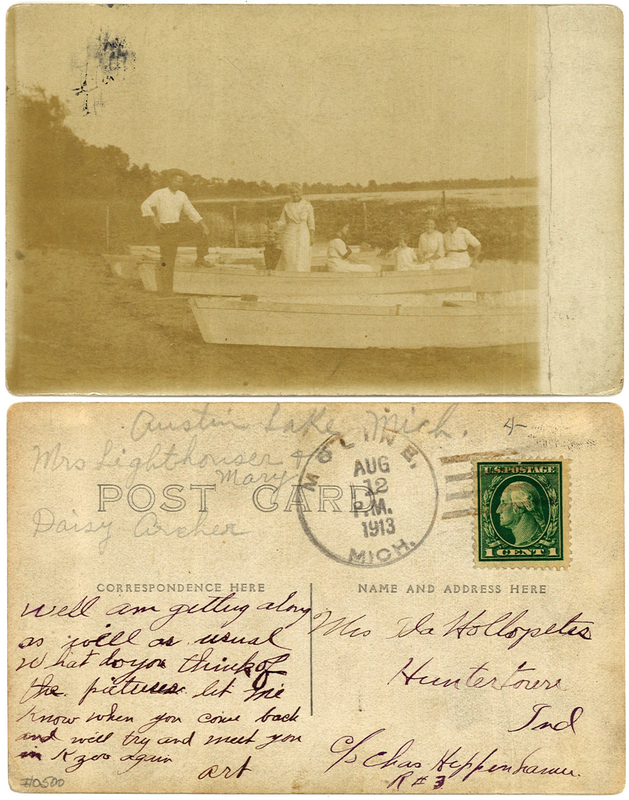 Austin Lake, Mich.
4-
Mrs Lighthouser &
Mary
POST CARD
Daisy Archer
MOLINE,
AUG
12
P.M.
1913
MICH.
U.S. POSTAGE
1 CENT 1
CORRESPONDENCE HERE
Well am getting along
as well as usual
What do you think of
the pictures let me
know when you come back
and will try and meet you
in Kzoo again
Art
#0500
NAME AND ADDRESS HERE
Mrs Ida Hollopeter
Huntertown
Ind
c/o Chas Heppenhamer
R #3